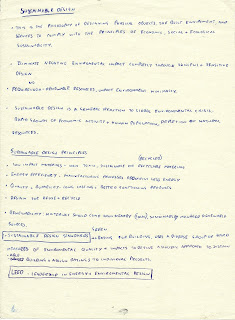 SUSTAINABLE DESIGN
• THIS IS THE PHILOSOPHY OF DESIGNING PHYSICAL OBJECTS, THE BUILT ENVIRONMENT, AND
SERVICES TO COMPLY WITH THE PRINCIPLES OF ECONOMIC, SOCIAL + ECOLOGICAL
SUSTAINABILITY.
• ELIMINATE NEGATIVE ENVIRONMENTAL IMPACT COMPLETELY THROUGH SKILLFUL + SENSITIVE
DESIGN
NO
• RENEWABLE RESOURCES, IMPACT ENVIRONMENT MINIMALLY.
• SUSTAINABLE DESIGN IS A GENERAL REACTION TO GLOBAL ENVIRONMENTAL CRISIS,
RAPID GROWTH OF ECONOMIC ACTIVITY + HUMAN POPULATION, DEPLETION OF NATURAL
RESOURCES.
SUSTAINABLE DESIGN PRINCIPLES
(RECYCLED)
• LOW IMPACT MATERIALS - NON TOXIC, SUSTAINABLE OR RECYCLABLE MATERIALS
• ENERGY EFFICIENCY - MANUFACTURING PROCESSES REQUIRING LESS ENERGY
• QUALITY + DURABILITY - LONG LASTING + BETTER FUNCTIONING PRODUCTS
• DESIGN FOR REUSE + RECYCLE
• RENEWABILITY: MATERIALS SHOULD COME FROM NEARBY RENEWABLE
SOURCES.
• SUSTAINABLE DESIGN STANDARDS GREEN BUILDING, USES A DIVERSE GROUP OF
MEASURES OF ENVIRONMENTAL QUALITY + IMPACTS
BUILDINGS + ASSIGN RATINGS TO INDIVIDUAL PRODUCTS.
LEED - LEADERSHIP IN ENERGY + ENVIRONMENTAL DESIGN